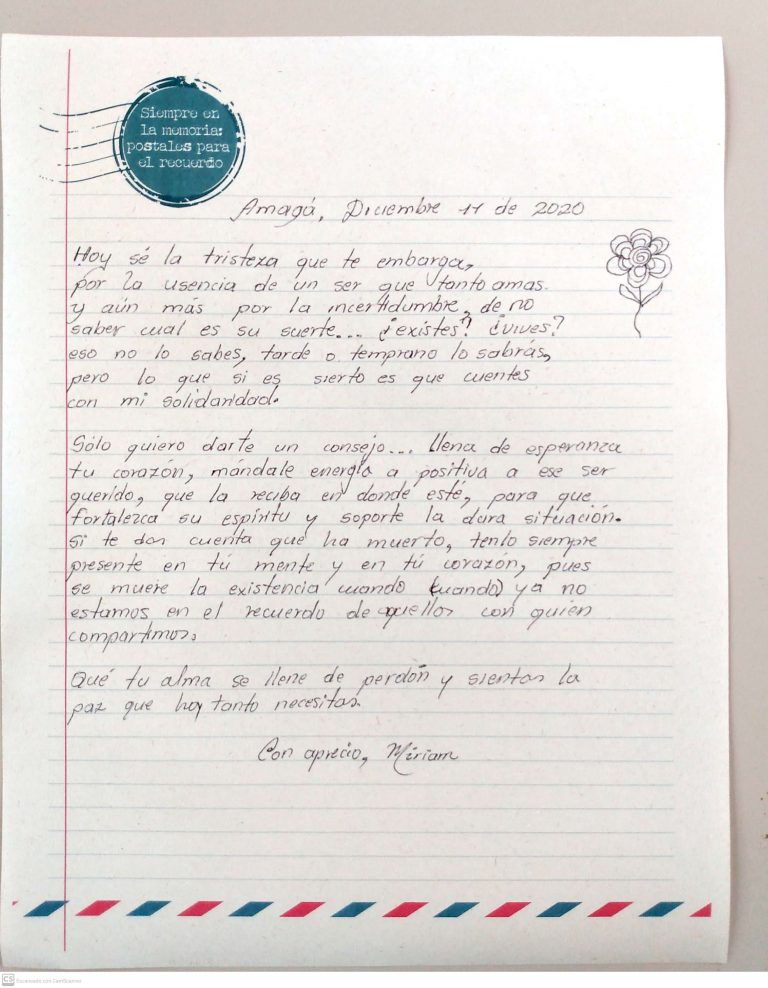 Siempre en
la memoria:
postales para
el recuerdo
Amagá, Diciembre 11 de 2020
Hoy sé la tristeza que te embarga,
por la usencia de un ser que tanto amas.
y aún más por la incertidumbre, de no
saber cual es su suerte... ¿existes? ¿vives?
eso no lo sabes, tarde o temprano lo sabrás,
pero lo que si es sierto es que cuentes
con mi solidaridad.
Sólo quiero darte un consejo... llena de esperanza
tu corazón, mándale energía a positiva a ese ser
querido, que la reciba en donde esté, para que
fortalezca su espíritu y soporte la dura situación.
si te dan cuenta que ha muerto, tenlo siempre
presente en tú mente y en tú corazón, pues
se muere la existencia cuando (cuando) ya no
estamos en el recuerdo de aquellos con quien
compartimos.
Qué tu alma se llene de perdón y sientas la
paz que hoy tanto necesitas.
Con aprecio, Miriam
CS Escaneado con CamScanner